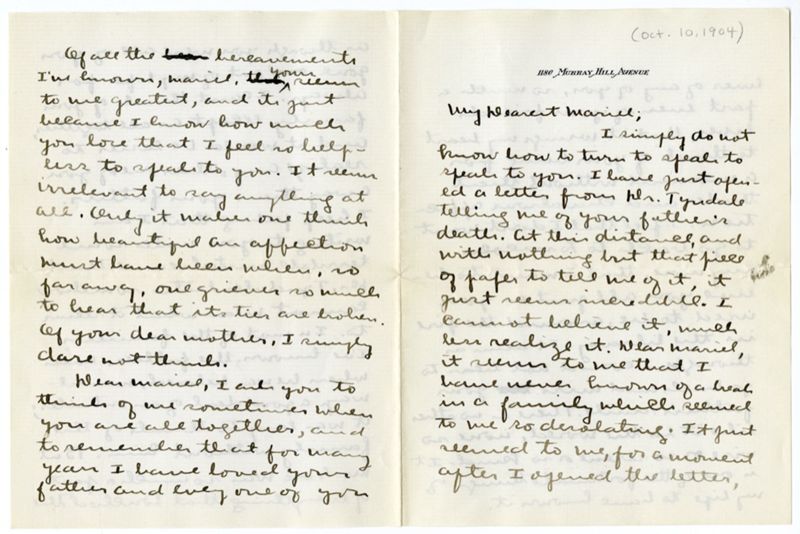 Of all the bereavements
I've known, Mariel, yours seems
to me greatest, and it's just
because I know how much
you love that I feel so help-
less to speak to you. It seems
irrelevant to say anything at
all. Only it makes one think
how beautiful an affection
must have been when, so
far away, one grieves so much
to hear that its ties are broken.
Of your dear mother, I simply
dare not think.
Dear Mariel, I ask you to
think of me sometimes when
you are all together, and
to remember that for many
years I have loved your
father and every one of you
(Oct. 10, 1904)
1180 MURRAY HILL AVENUE
My Dearest Mariel;
I simply do not
know how to turn to speak to
speak to you. I have just open-
ed a letter from Dr. Tyndale
telling me of your father's
death. At this distance, and
with nothing but that piece
of paper to tell me of it, it
just seems incredible. I
cannot believe it, much
less realize it. Dear Mariel,
it seems to me that I
have never known of a break
in a family which seemed
to me so desolating. It just
seemed to me, for a moment
after I opened the letter,